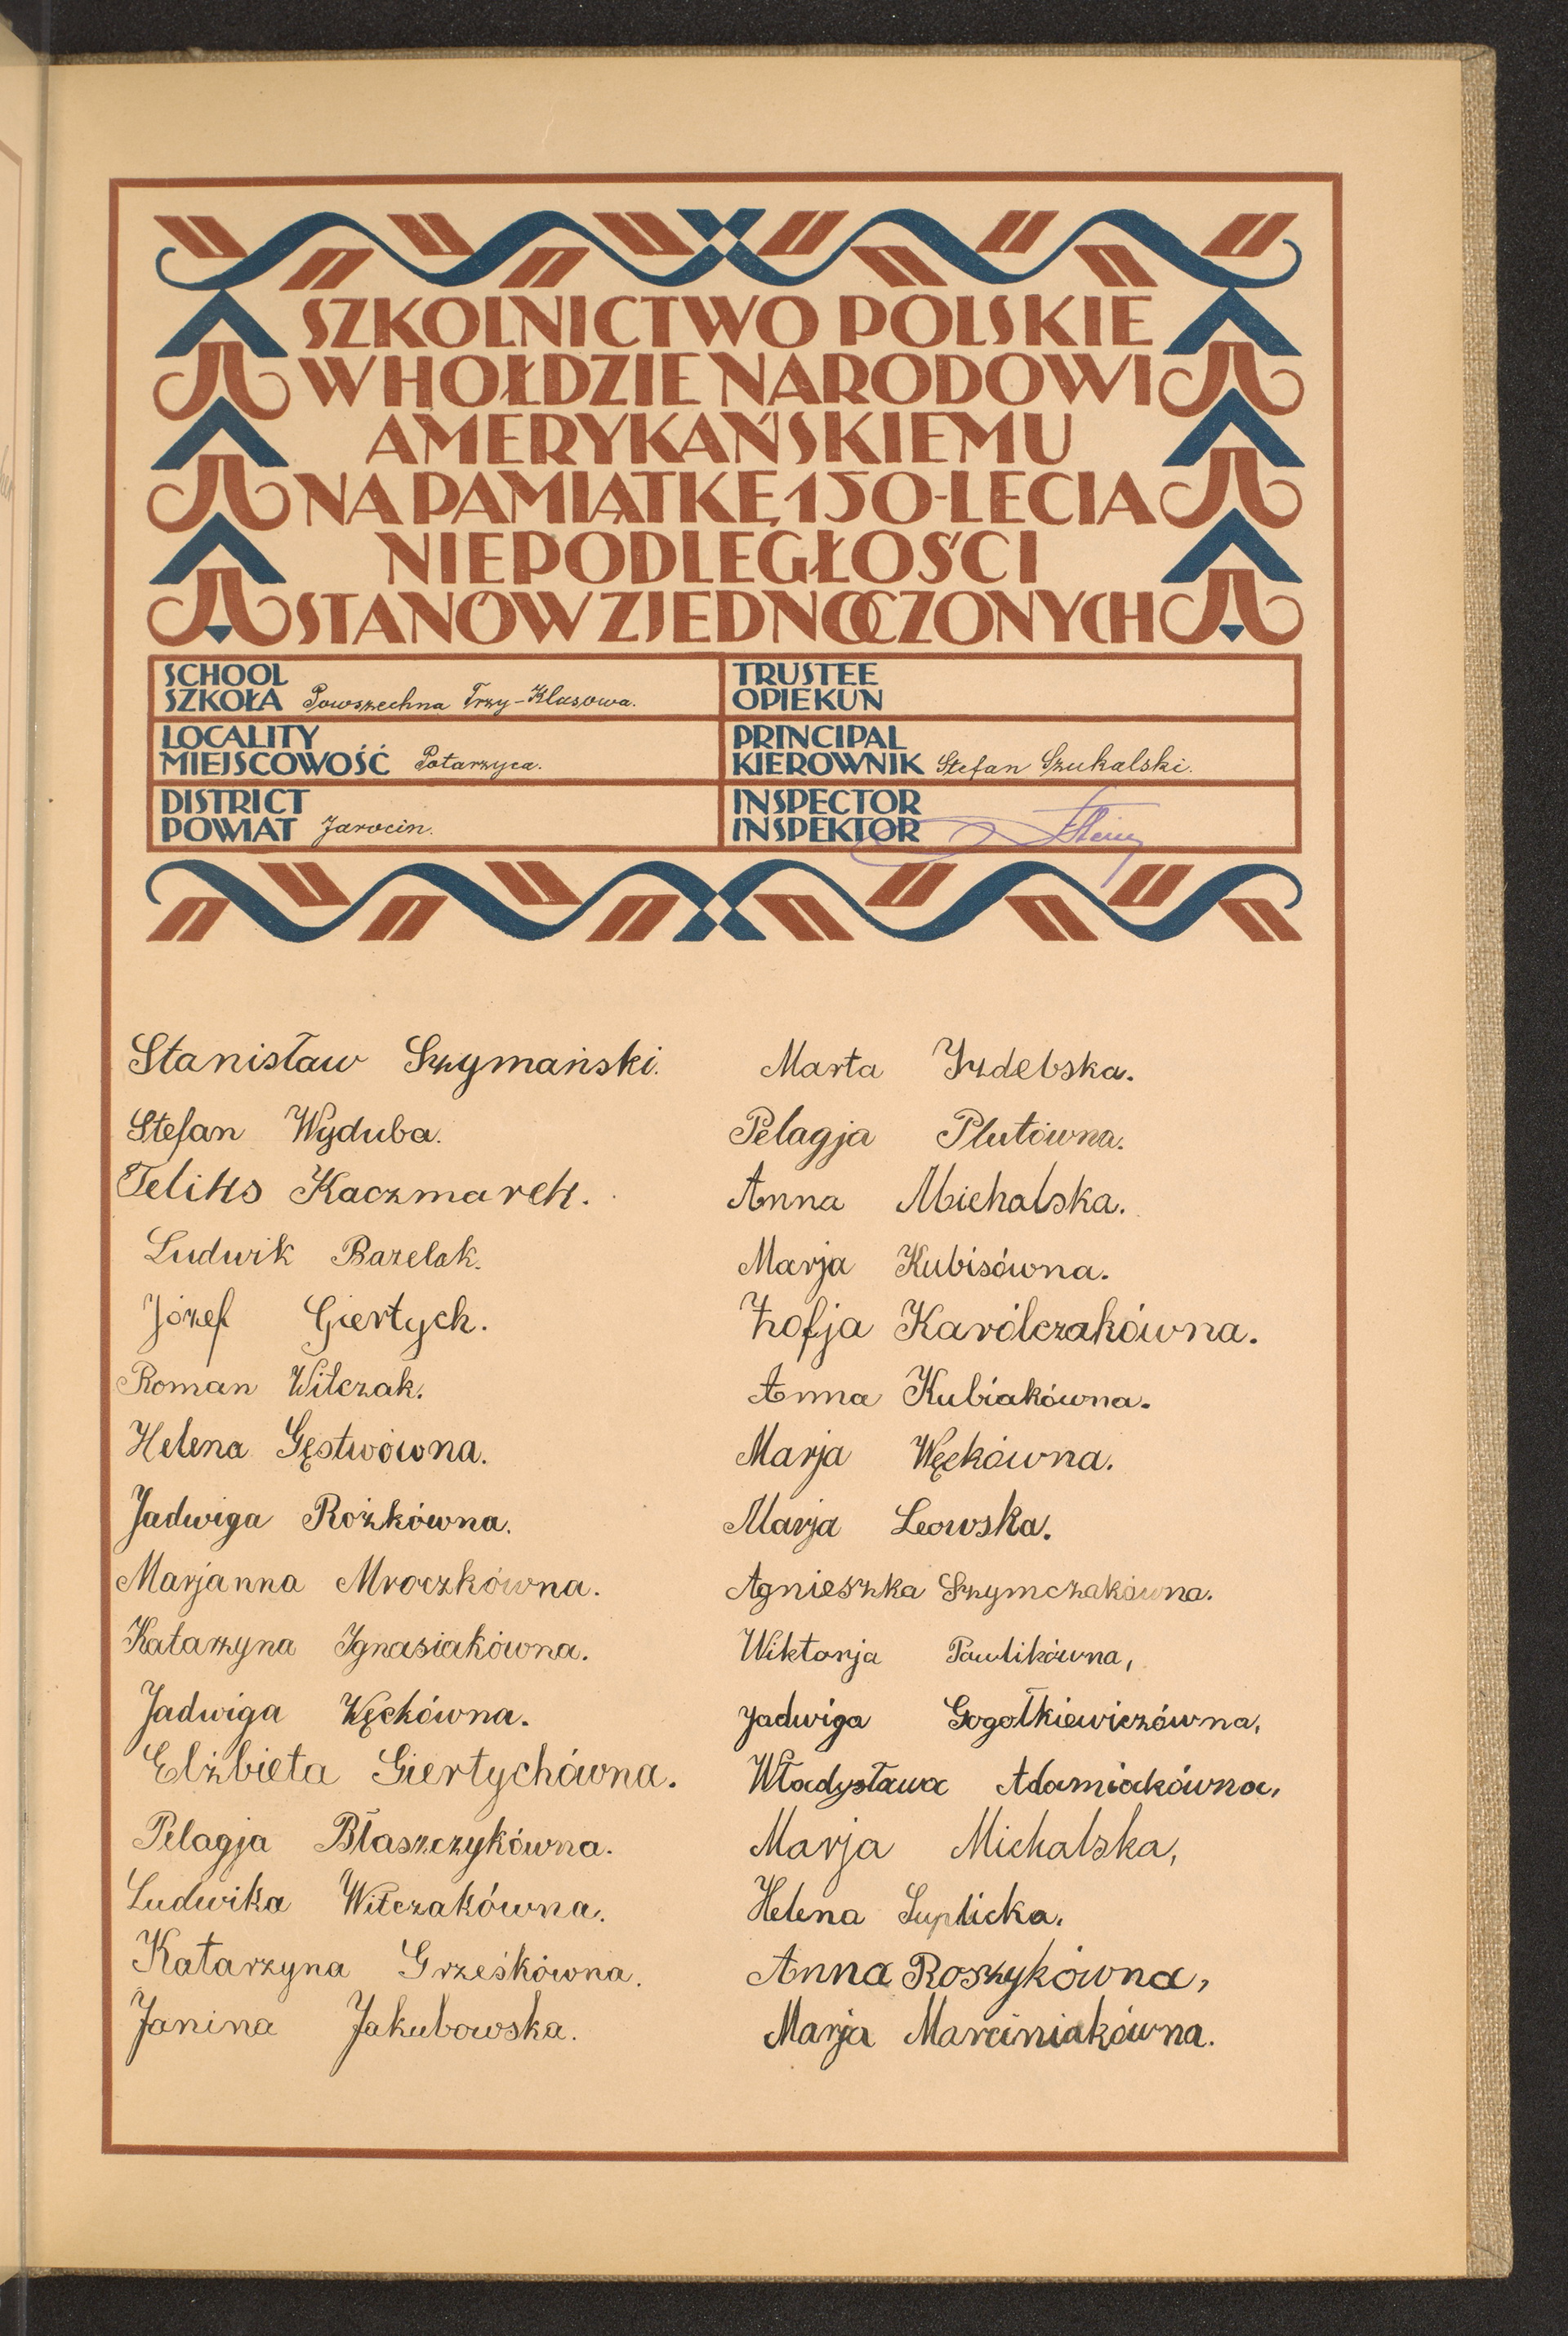 SZKOLNICTWO POLSKIE
W HOŁDZIE NARODOWI
AMERYKAŃSKIEMU
NA PAMIĄTKĘ 150-LECIA
NIEPODLEGŁOŚCI
STANÓW ZJEDNOCZONYCH
SCHOOL
SZKOŁA Powszechna Trzy-Klasowa.
LOCALITY
MIEJSCOWOŚĆ Potarzyca.
DISTRICT
POWIAT Jarocin.
TRUSTEE
OPIEKUN
PRINCIPAL
KIEROWNIK Stefan Szukalski.
INSPECTOR
INSPEKTOR
Stanisław Szymański.
Stefan Wyduba.
Feliks Kaczmarek.
Ludwik Bazelak.
Józef Giertych.
Roman Witczak.
Helena Gęstwówna.
Jadwiga Rożkówna.
Marjanna Mroczkówna.
Katarzyna Ignasiakówna.
Jadwiga Węckówna.
Elżbieta Giertychówna.
Pelagja Błaszczykówna.
Ludwika Witczakówna.
Katarzyna Grześkówna.
Janina Jakubowska.
Marta Izdebska.
Pelagja Plutówna.
Anna Michalska.
Marja Kubisówna.
Zofja Karólczakówna.
Anna Kubiakówna.
Marja Węckówna.
Marja Leowska.
Agnieszka Szymczakówna.
Wiktorja Pawlikówna,
Jadwiga Gogołkiewiczówna,
Władysława Adamiakówna,
Marja Michalska,
Helena Suplicka.
Anna Roszykówna,
Marja Marciniakówna.